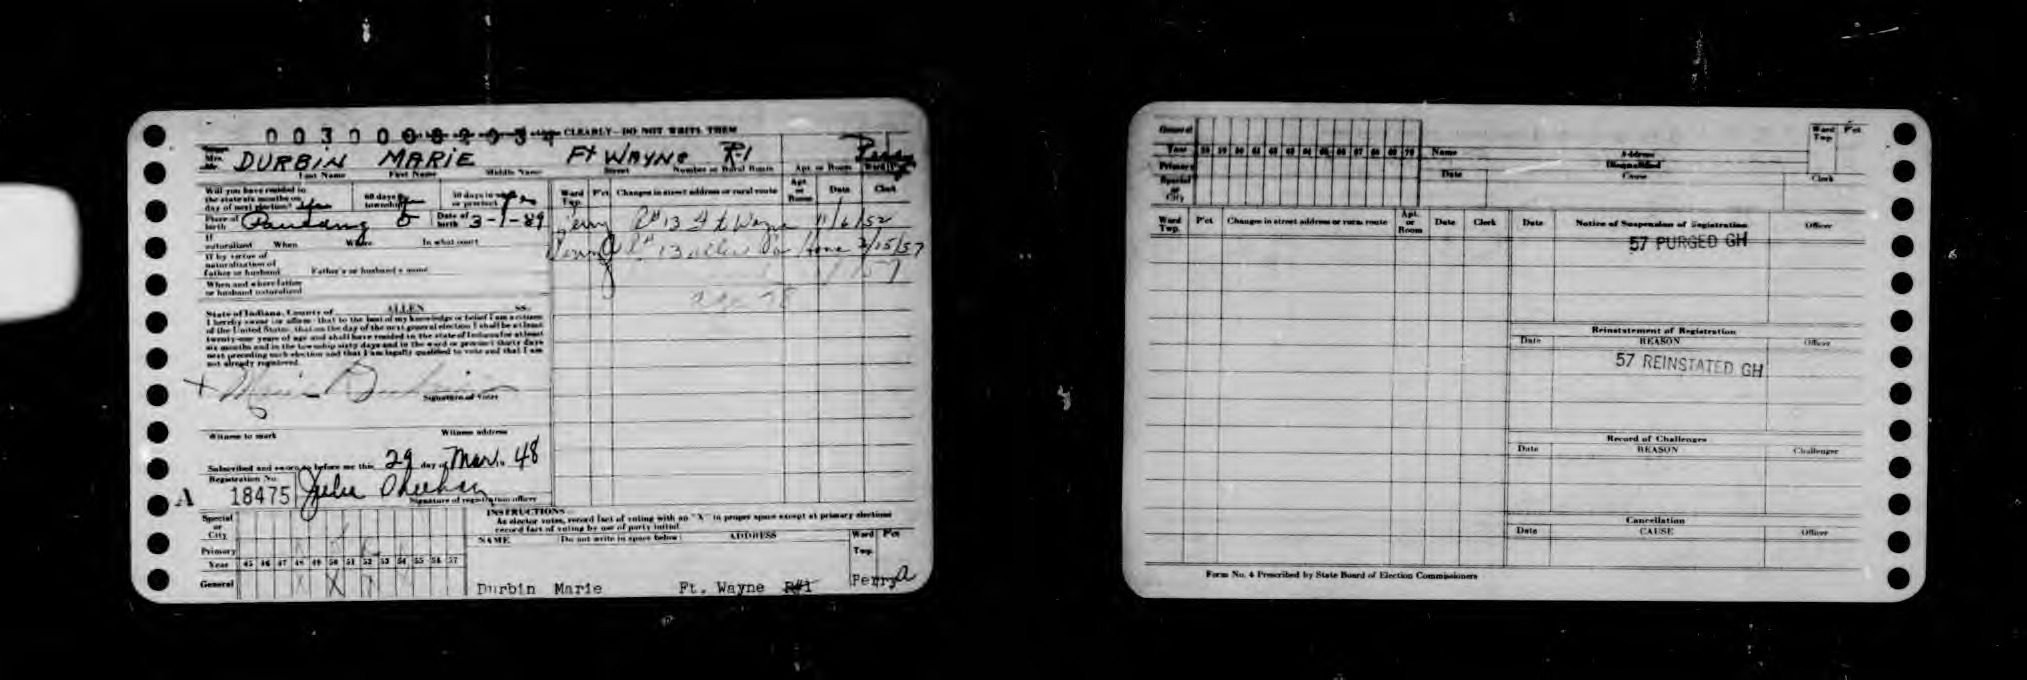 CLEARLY—DO NOT WRITE THEM
Mrs. DURBIN MARIE Ft WAYNE R-1
Last Name First Name Middle Name Street Number or Rural Route Apt. or Room
Will you have resided in the state six months on day of next election? yes 60 days in township 30 days in precinct yes
Place of birth Paulding O Date of birth 3-1-89
If naturalized When Where In what court
If by virtue of naturalization of father or husband Father's or husband's name
When and where father or husband naturalized
Ward Twp. P'ct Changes in street address or rural route Apt. or Room Date Clerk
Perry R#13 Ft Wayne 11/6/52
Perry R# 13 3/15/57
State of Indiana, County of ALLEN ss.
I hereby swear (or affirm) that to the best of my knowledge or belief I am a citizen
of the United States, that on the day of the next general election I shall be at least
twenty-one years of age and shall have resided in the state of Indiana for at least
six months and in the township sixty days and in the ward or precinct thirty days
next preceding such election and that I am legally qualified to vote and that I am
not already registered.
+ Marie Durbin
Signature of Voter
Witness to mark Witness address
Subscribed and sworn to before me this 29 day of Mar. 48
Registration No.
A 18475
Signature of registration officer
Special or City
Primary
Year 45 46 47 48 49 50 51 52 53 54 55 56 57
General
INSTRUCTIONS
As elector votes, record fact of voting with an "X" in proper space except at primary elections
record fact of voting by use of party initial.
NAME (Do not write in space below) ADDRESS Ward Twp. P'ct
Durbin Marie Ft. Wayne R#1 Perry A
General
Year 58 59 60 61 62 63 64 65 66 67 68 69 70
Primary
Special or City
Name Address Ward Twp. P'ct
Disqualified
Date Cause Clerk
Ward Twp. P'ct Changes in street address or rural route Apt. or Room Date Clerk
Date Notice of Suspension of Registration Officer
57 PURGED GH
Reinstatement of Registration
Date REASON Officer
57 REINSTATED GH
Record of Challenges
Date REASON Challenger
Cancellation
Date CAUSE Officer
Form No. 4 Prescribed by State Board of Election Commissioners